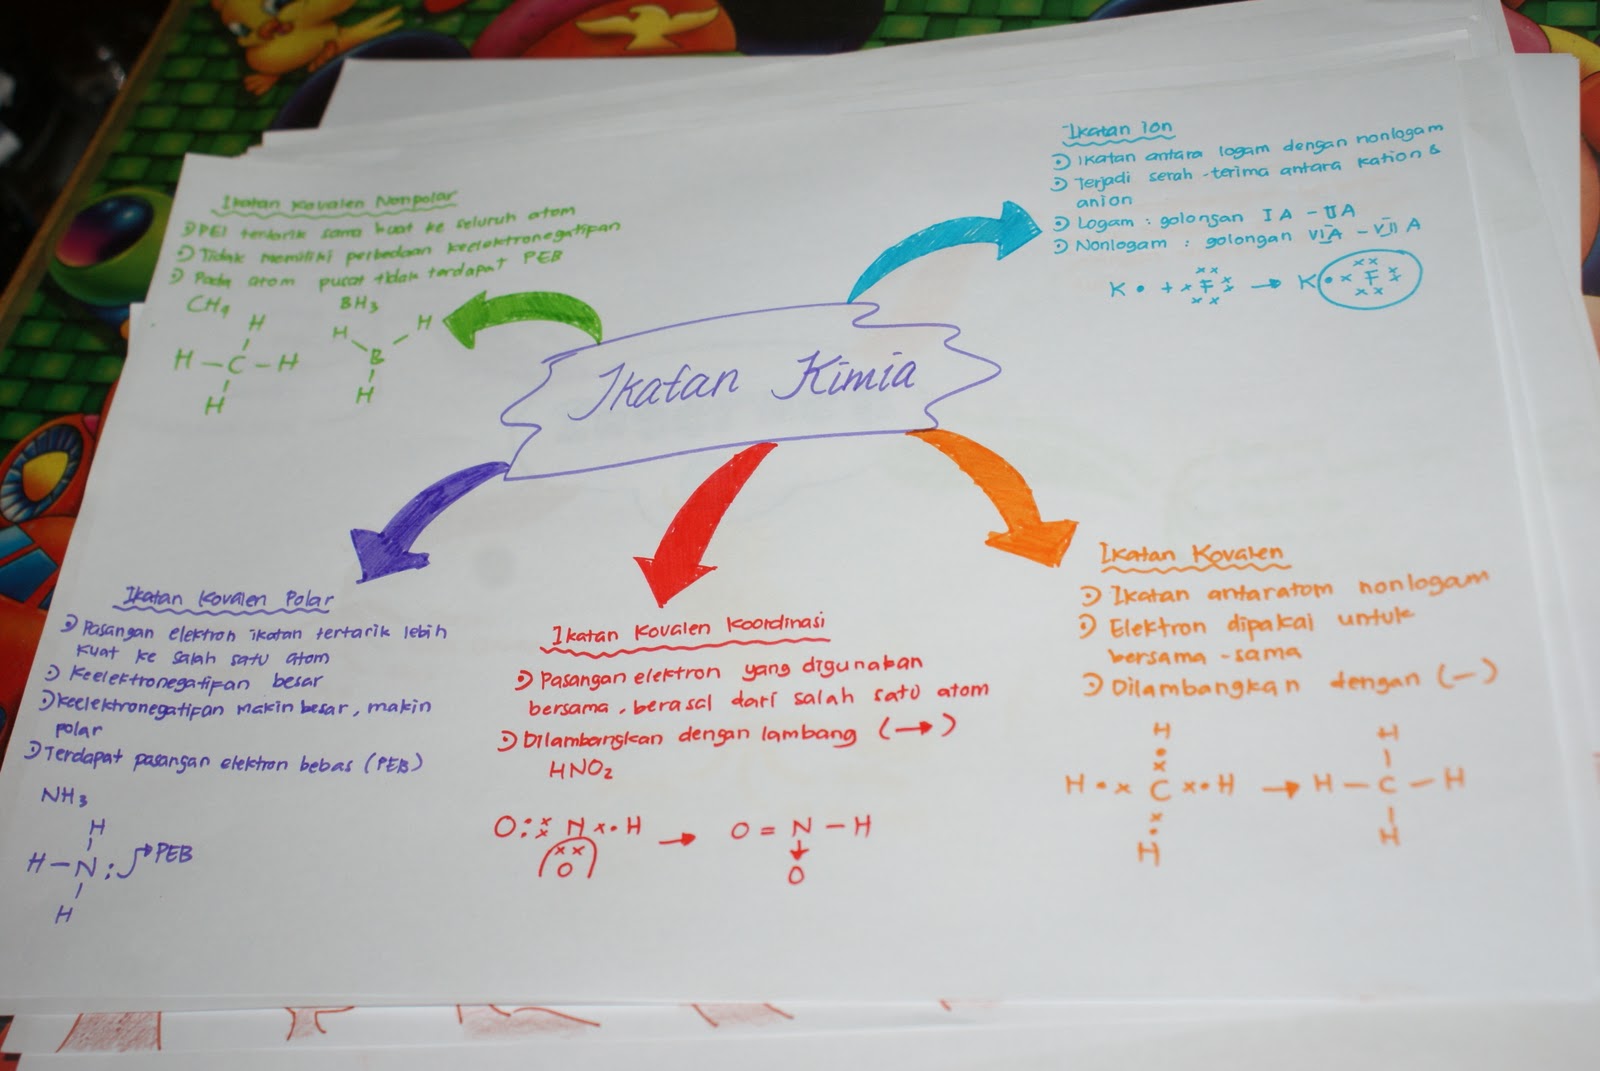 Ikatan Kimia
Ikatan Kovalen Nonpolar
PEI tertarik sama kuat ke seluruh atom
Tidak memiliki perbedaan keelektronegatifan
Pada atom pusat tidak terdapat PEB
CH4 BH3
H
H – C – H
H
H H
B
H
Ikatan Ion
Ikatan antara logam dengan nonlogam
Terjadi serah-terima antara kation &
anion
Logam : golongan IA - IIA
Nonlogam : golongan VIA - VIIA
K • + ×
××
F
××
×× → K • ×
××
F
××
××
Ikatan Kovalen Polar
Pasangan elektron ikatan tertarik lebih
kuat ke salah satu atom
Keelektronegatifan besar
Keelektronegatifan makin besar, makin
polar
Terdapat pasangan elektron bebas (PEB)
NH3
H
H – N : → PEB
H
Ikatan Kovalen Koordinasi
Pasangan elektron yang digunakan
bersama, berasal dari salah satu atom
Dilambangkan dengan lambang (→)
HNO2
O : ×× N × • H → O = N – H
×× ↓
O O
Ikatan Kovalen
Ikatan antaratom nonlogam
Elektron dipakai untuk
bersama-sama
Dilambangkan dengan (—)
H H
•
×
H • × C × • H → H – C – H
×
•
H H